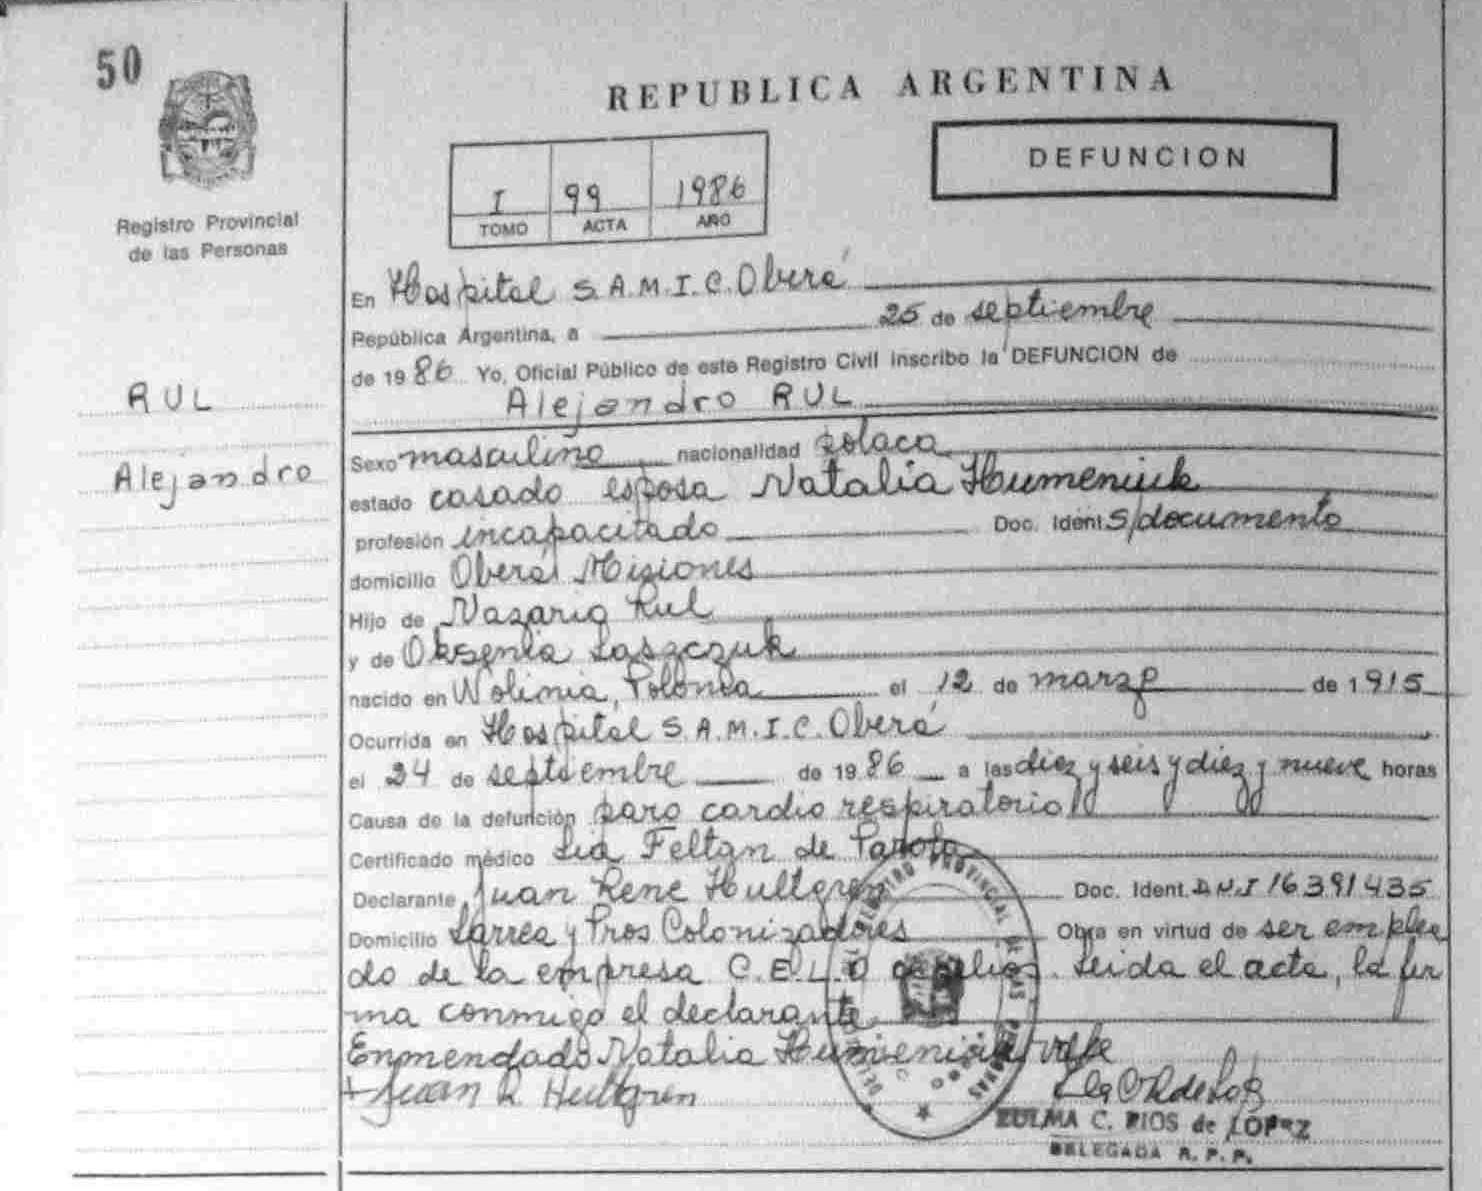 50
REPUBLICA ARGENTINA
DEFUNCION
I 99 1986
TOMO ACTA AÑO
Registro Provincial
de las Personas
RUL
Alejandro
En Hospital S.A.M.I.C. Oberá
República Argentina, a 25 de septiembre
de 1986 Yo, Oficial Público de este Registro Civil inscribo la DEFUNCION de
Alejandro RUL
Sexo masculino nacionalidad polaca
estado casado esposa Natalia Humeniuk
profesión incapacitado Doc. Ident S/documento
domicilio Oberá Misiones
Hijo de Nazario Rul
y de Oksenia Laszczuk
nacido en Wolinia, Polonia el 12 de marzo de 1915
Ocurrida en Hospital S.A.M.I.C. Oberá
el 24 de septiembre de 1986 a las diez y seis y diez y nueve horas
Causa de la defunción paro cardio respiratorio
Certificado médico Lia Feltan de Parola
Declarante Juan Rene Hultgren Doc. Ident. D.N.I 16391435
Domicilio Larrea y Pros Colonizadores Obra en virtud de ser emplea
do de la empresa C.E.L.O Leida el acta, la fir
ma conmigo el declarante
Enmendado Natalia Humeniuk vale
Juan R Hultgren
ZULMA C. RIOS de LOPEZ
DELEGADA R. P. P.
REGISTRO PROVINCIAL DE LAS PERSONAS